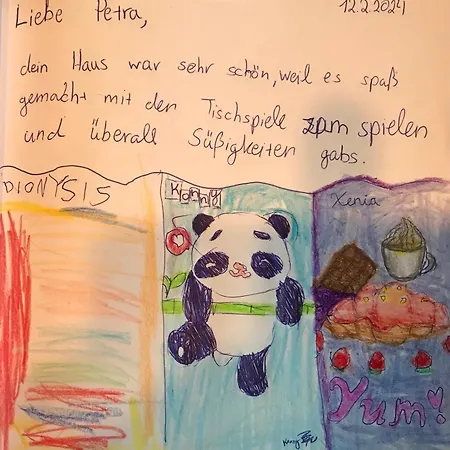 Liebe Petra,
12.2.2024
dein Haus war sehr schön, weil es spaß
gemacht mit der Tischspiele zam spielen
und überall Süßigkeiten gabs.
DIONYSIS
Konny
Xenia
Yum!